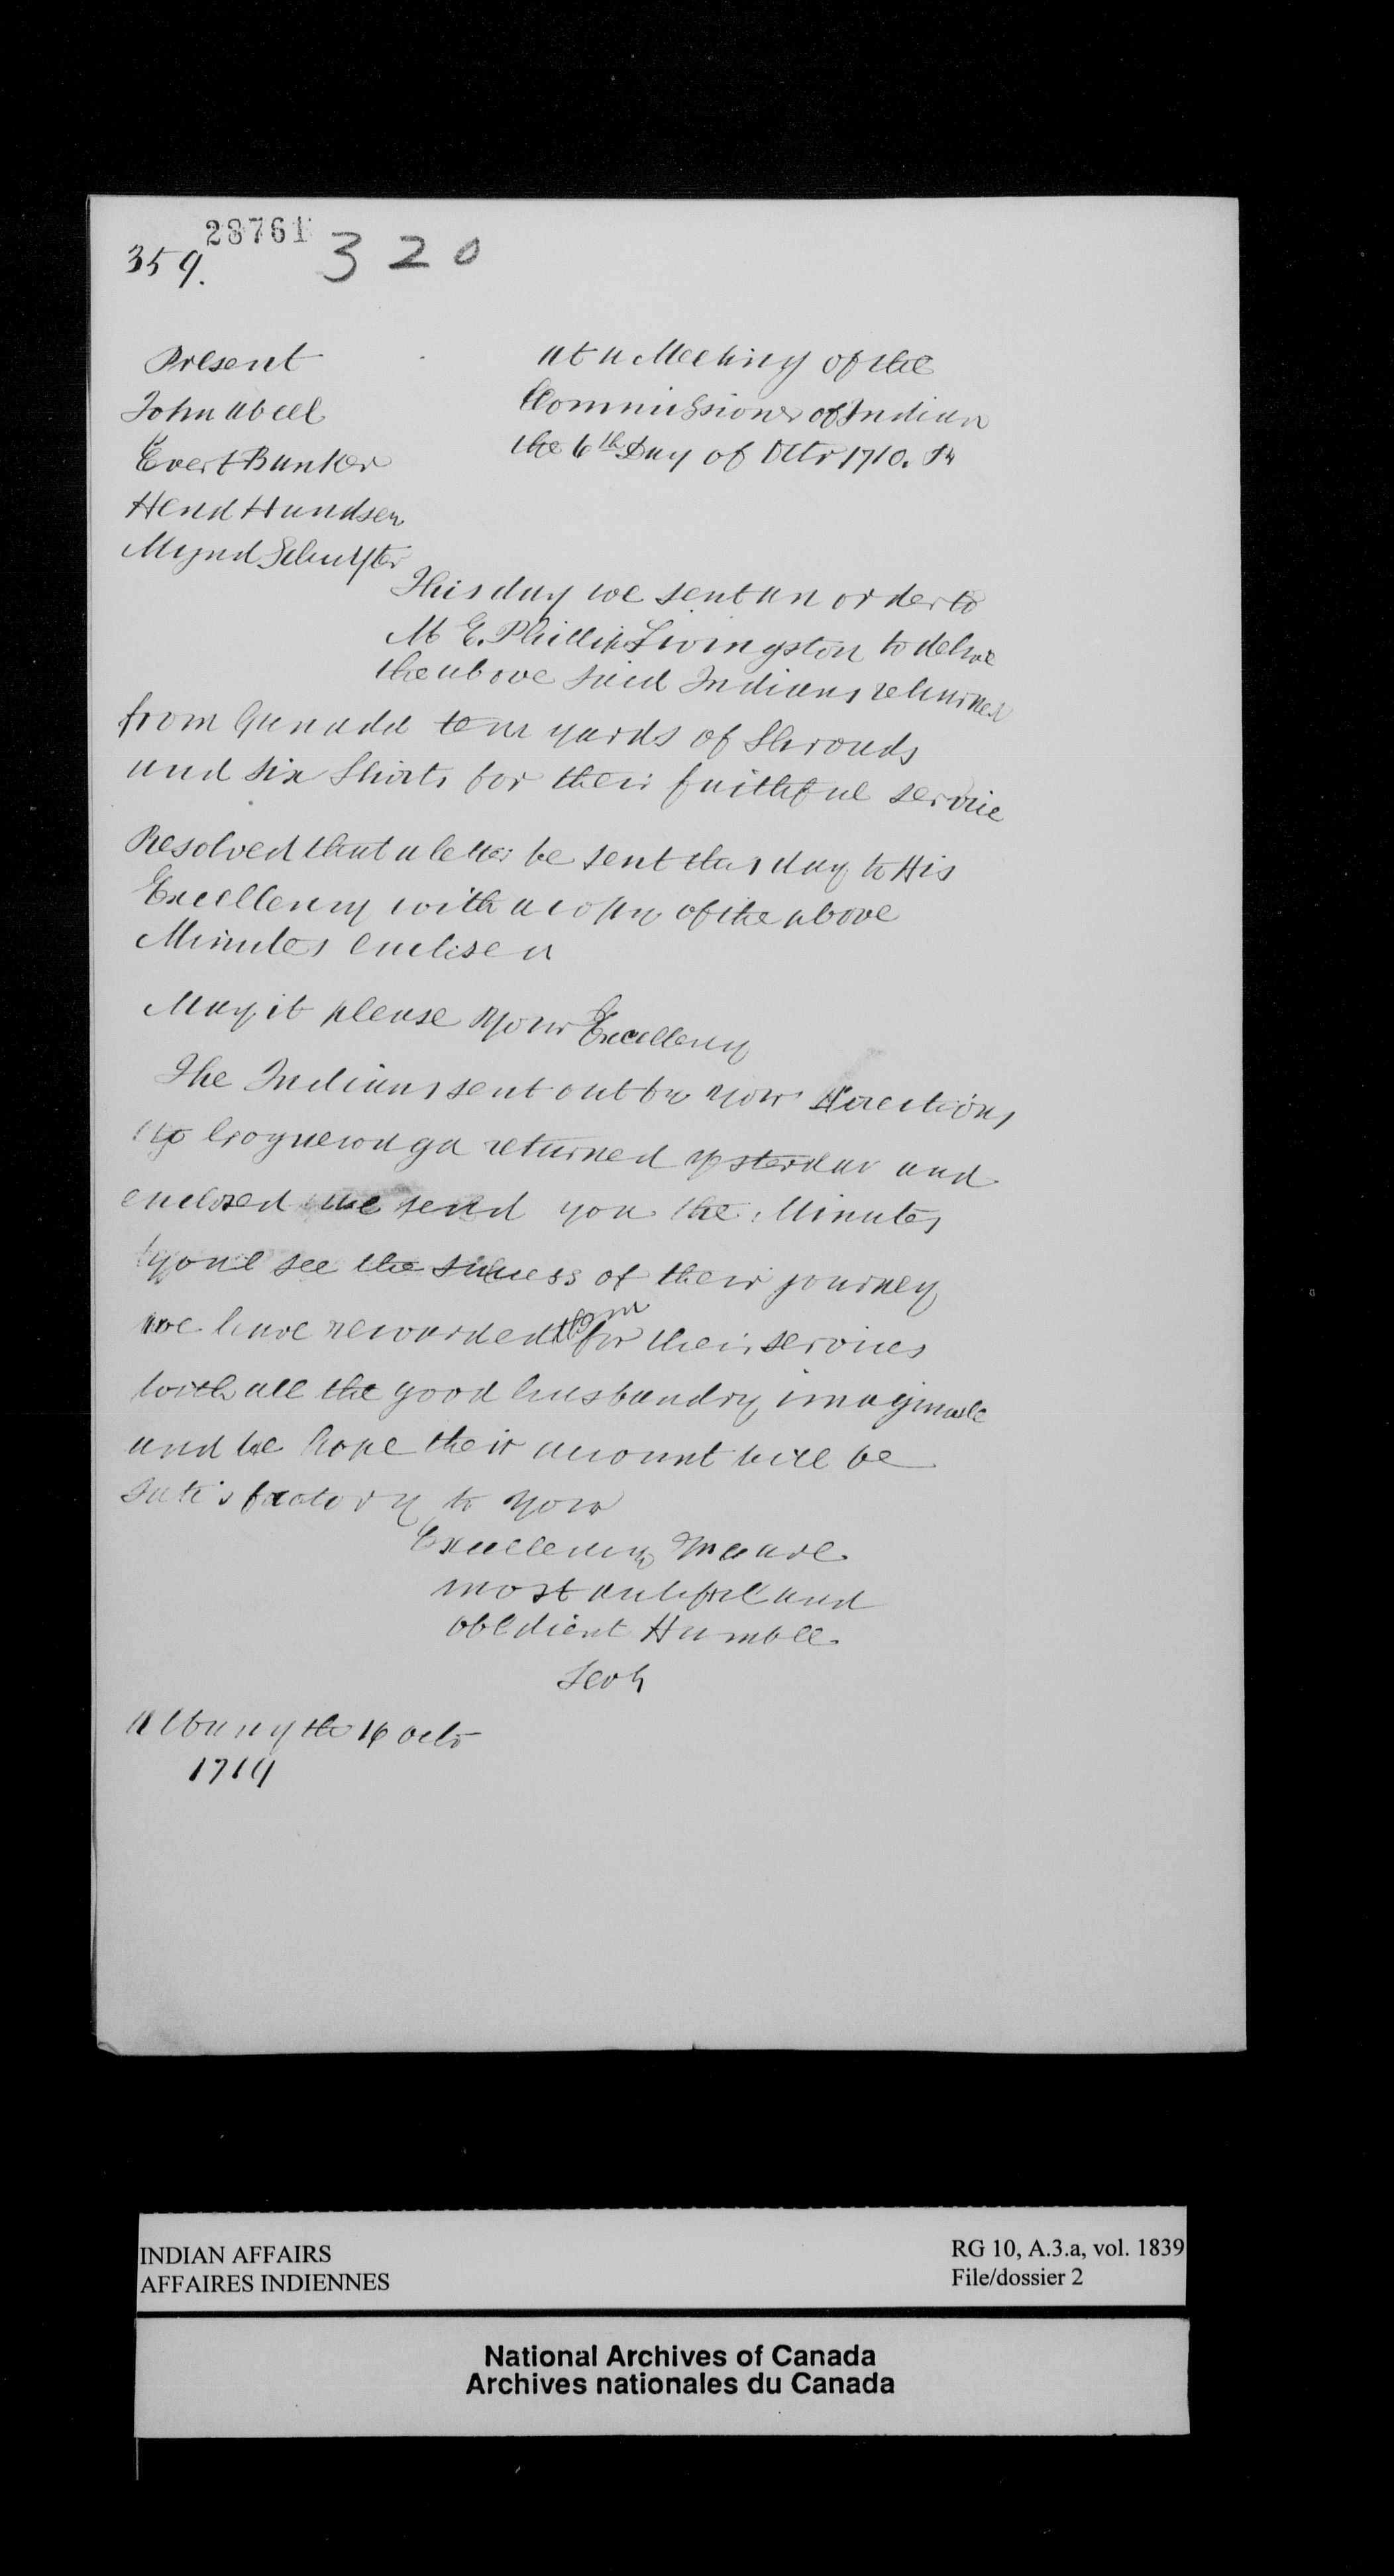 28761
359. 320
Present
John Abeel
Evert Banker
Hend Hansen
Mynd Schuyter
At a Meeting of the
Commissioner of Indian
the 6th Day of Octr 1710.
This day we sent an order to
M E. Phillip Livingston to deliver
the above said Indians returned
from Canada ten yards of Shrouds
and six Shirts for their faithful service
Resolved that a letter be sent this day to His
Excellency with a copy of the above
Minutes enclised
May it please your Excellency
The Indians sent out by your directions
to Crognewaga returned yesterday and
enclosed we send you the Minutes
youl see the success of their journey
we have rewarded them for their services
with all the good husbandry imaginable
and we hope their account will be
satisfactory to your
Excellency
most dutifull and
obedient Humble
Servt
Albany the 16 Octo
INDIAN AFFAIRS
AFFAIRES INDIENNES
RG 10, A.3.a, vol. 1839
File/dossier 2
National Archives of Canada
Archives nationales du Canada